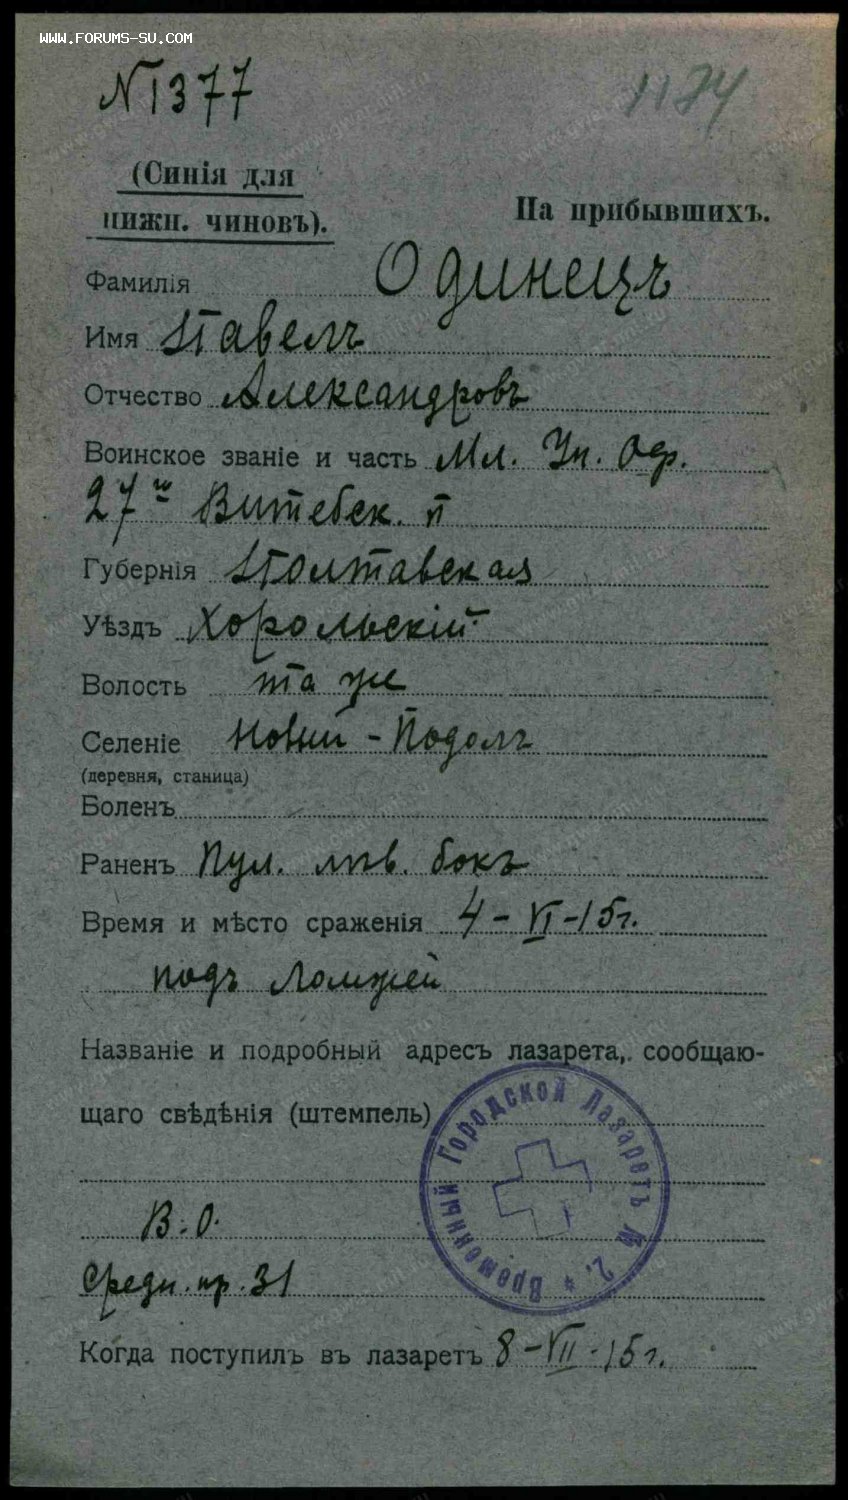 WWW.FORUMS-SU.COM
№ 1377
1174
(Синія для
нижн. чиновъ).
На прибывшихъ.
Фамилія Одинецъ
Имя Павелъ
Отчество Александровъ
Воинское званіе и часть Мл. Ун. Оф.
27й Витебск. п
Губернія Полтавская
Уѣздъ Хорольскій
Волость та же
Селеніе Новый - Подолъ
(деревня, станица)
Боленъ
Раненъ Пул. лѣв. бокъ
Время и мѣсто сраженія 4 - VI - 15 г.
подъ Ломжей
Названіе и подробный адресъ лазарета, сообщаю-
щаго свѣдѣнія (штемпель)
Временный Городской Лазаретъ № 2. *
В. О.
Средн. пр. 31
Когда поступилъ въ лазаретъ 8 - VII - 15 г.